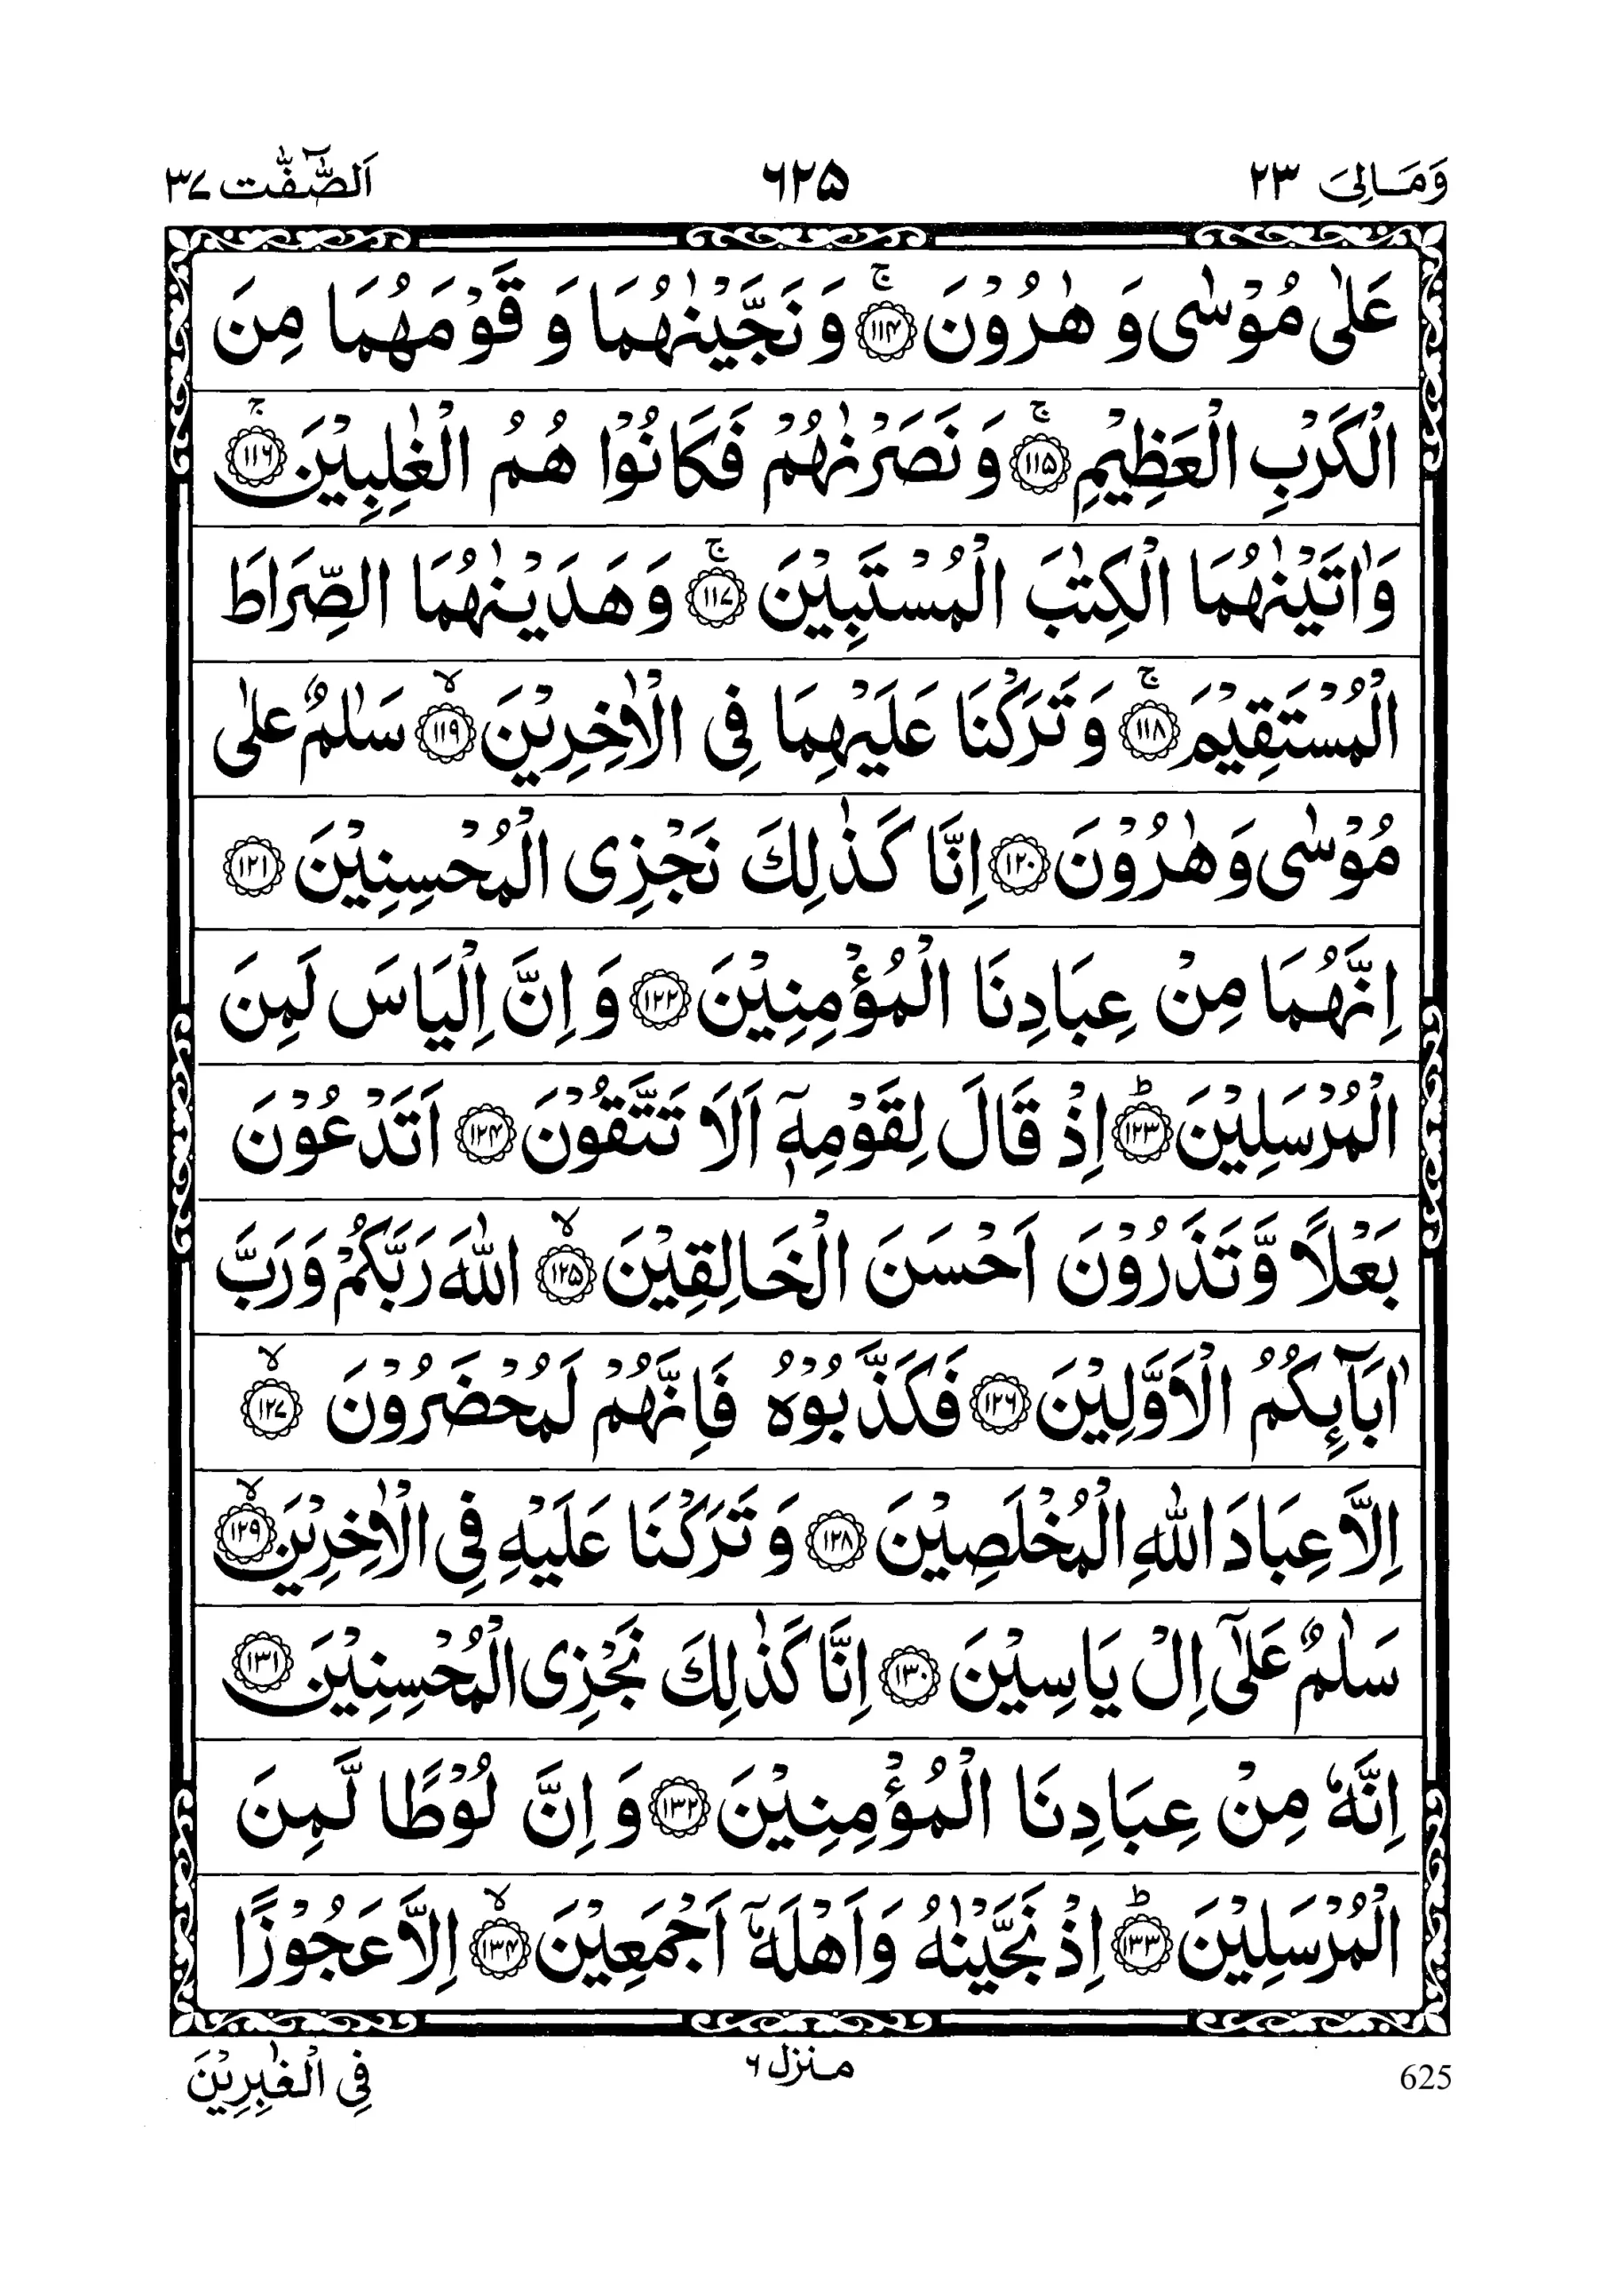 وَمَـالِیَ ۲۳ ۶۲۵ اَلصّٰٓفّٰت ۳۷
عَلٰى مُوْسٰى وَ هٰرُوْنَ ۚ‏﴿۱۱۴﴾ وَ نَجَّيْنٰهُمَا وَ قَوْمَهُمَا مِنَ
الْكَرْبِ الْعَظِيْمِ ۚ‏﴿۱۱۵﴾ وَ نَصَرْنٰهُمْ فَكَانُوْا هُمُ الْغٰلِبِيْنَ ۚ‏﴿۱۱۶﴾
وَاٰتَيْنٰهُمَا الْكِتٰبَ الْمُسْتَبِيْنَ ۚ‏﴿۱۱۷﴾ وَهَدَيْنٰهُمَا الصِّرَاطَ
الْمُسْتَقِيْمَ ۚ‏﴿۱۱۸﴾ وَ تَرَكْنَا عَلَيْهِمَا فِى الْاٰخِرِيْنَ ۙ‏﴿۱۱۹﴾ سَلٰمٌ عَلٰى
مُوْسٰى وَهٰرُوْنَ ﴿۱۲۰﴾ اِنَّا كَذٰلِكَ نَجْزِى الْمُحْسِنِيْنَ ﴿۱۲۱﴾
اِنَّهُمَا مِنْ عِبَادِنَا الْمُؤْمِنِيْنَ ﴿۱۲۲﴾ وَ اِنَّ اِلْيَاسَ لَمِنَ
الْمُرْسَلِيْنَ ؕ‏﴿۱۲۳﴾ اِذْ قَالَ لِقَوْمِهٖۤ اَلَا تَتَّقُوْنَ ﴿۱۲۴﴾ اَتَدْعُوْنَ
بَعْلًا وَّتَذَرُوْنَ اَحْسَنَ الْخَالِقِيْنَ ۙ‏﴿۱۲۵﴾ اللّٰهَ رَبَّكُمْ وَرَبَّ
اٰبَآىِٕكُمُ الْاَوَّلِيْنَ ﴿۱۲۶﴾ فَكَذَّبُوْهُ فَاِنَّهُمْ لَمُحْضَرُوْنَ ۙ‏﴿۱۲۷﴾
اِلَّا عِبَادَ اللّٰهِ الْمُخْلَصِيْنَ ﴿۱۲۸﴾ وَ تَرَكْنَا عَلَيْهِ فِى الْاٰخِرِيْنَ ۙ‏﴿۱۲۹﴾
سَلٰمٌ عَلٰٓى اِلْ يَاسِيْنَ ﴿۱۳۰﴾ اِنَّا كَذٰلِكَ نَجْزِى الْمُحْسِنِيْنَ ﴿۱۳۱﴾
اِنَّهٗ مِنْ عِبَادِنَا الْمُؤْمِنِيْنَ ﴿۱۳۲﴾ وَ اِنَّ لُوْطًا لَّمِنَ
الْمُرْسَلِيْنَ ؕ‏﴿۱۳۳﴾ اِذْ نَجَّيْنٰهُ وَاَهْلَهٗۤ اَجْمَعِيْنَ ۙ‏﴿۱۳۴﴾ اِلَّا عَجُوْزًا
625 مـنزل ۶ فِى الْغٰبِرِيْنَ